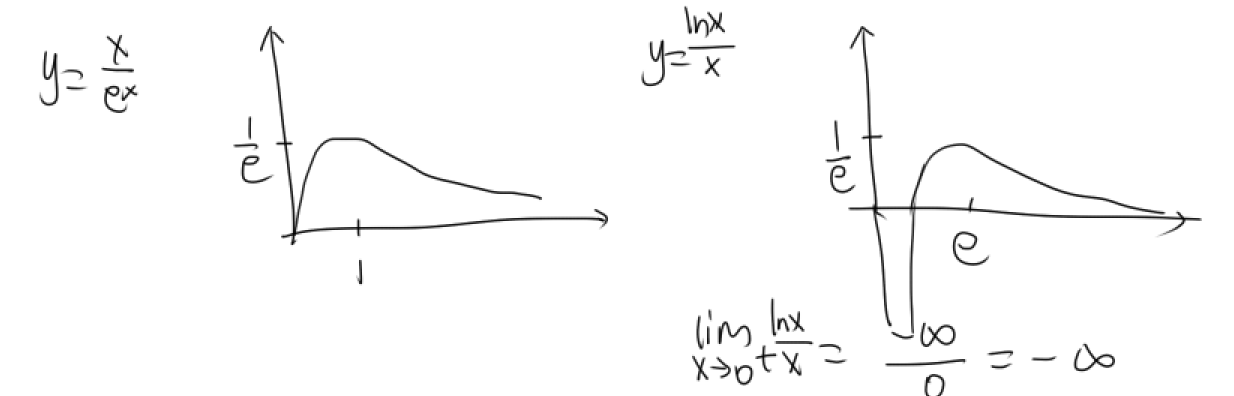 y = x/e^x
1/e
1
y = lnx/x
1/e
e
lim x→0+ lnx/x = -∞/0 = -∞